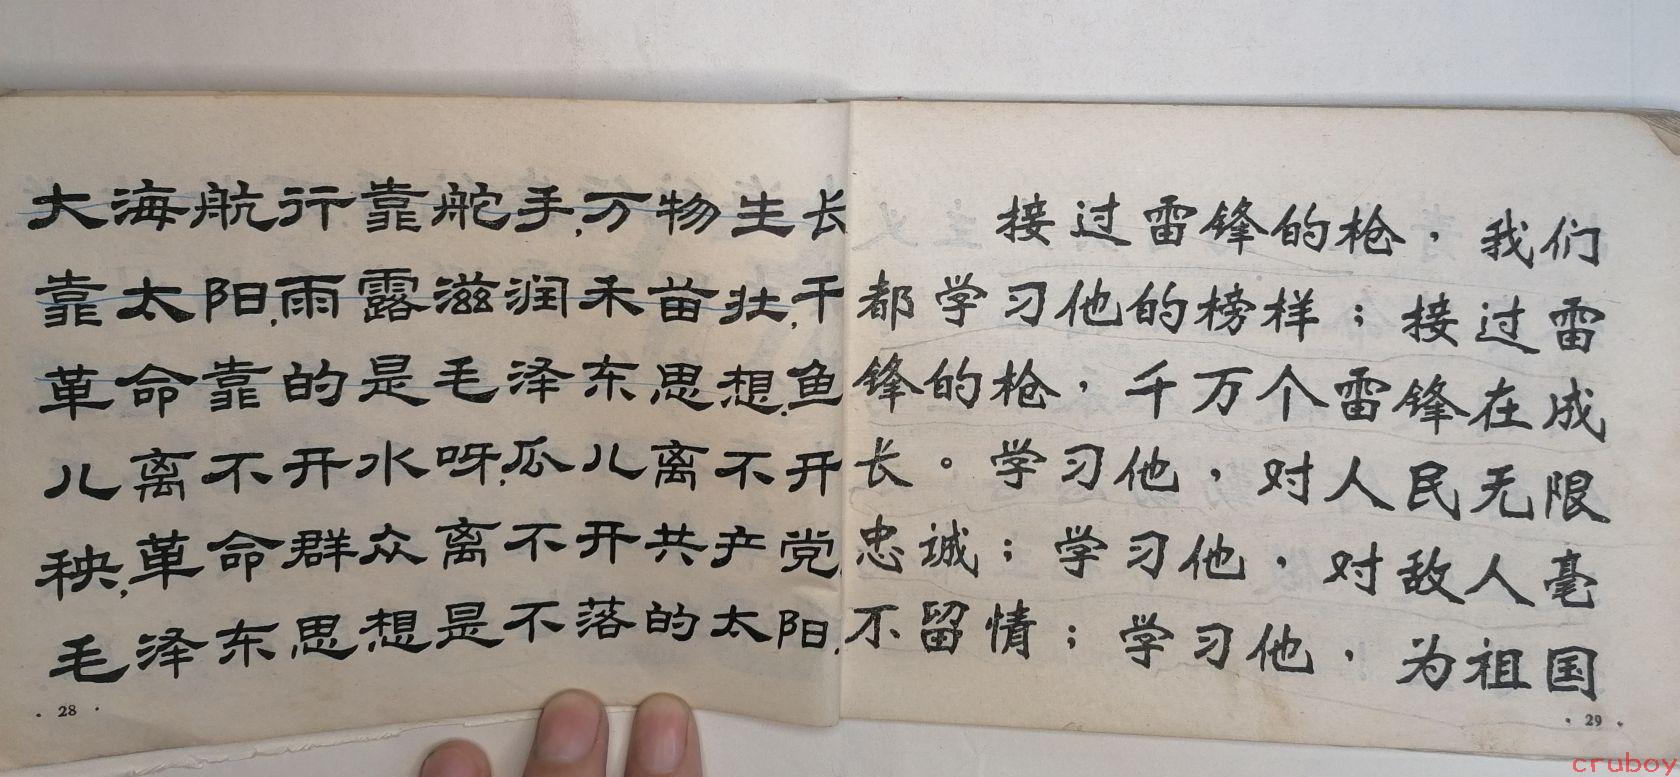 大海航行靠舵手,万物生长
靠太阳,雨露滋润禾苗壮,干
革命靠的是毛泽东思想.鱼
儿离不开水呀,瓜儿离不开
秧,革命群众离不开共产党.
毛泽东思想是不落的太阳.
· 28 ·
接过雷锋的枪，我们
都学习他的榜样；接过雷
锋的枪，千万个雷锋在成
长。学习他，对人民无限
忠诚；学习他，对敌人毫
不留情；学习他，为祖国
· 29 ·
cruboy